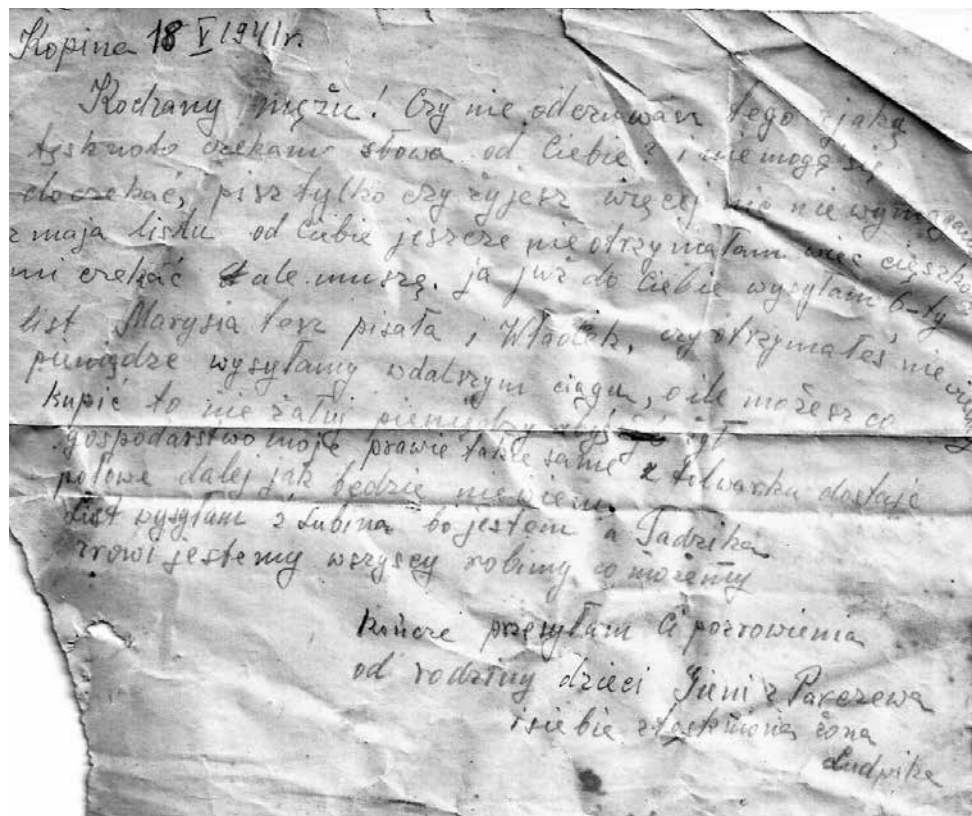 Kopina 18 V 1941r.
Kochany mężu! Czy nie odczuwasz tego z jaką
tęsknoto czekam słowa od Ciebie? i nie mogę się
doczekać, pisz tylko czy żyjesz więcej nic nie wymagam
z maja listu od Ciebie jeszcze nie otrzymałam więc ciężko
mi czekać ale muszę. ja już do Ciebie wysyłam 6-ty
list Marysia tesz pisała i Władek, czy otrzymałeś nie wiemy
pieniądze wysyłamy wdalszym ciągu, o ile możesz co
kupić to nie żałuj pieniędzy żył
gospodarstwo moje prawie takie same z folwarku dostaję
połowe dalej jak będzie niewiem.
List wysyłam z Lubina bo jestem a Tadzika
zrowi jestemy wszyscy robimy co możemy
Kończe przesyłam Ci pozrowienia
od rodziny dzieci Gieni z Parczewa
i siebie stęskniona żona
Ludwika